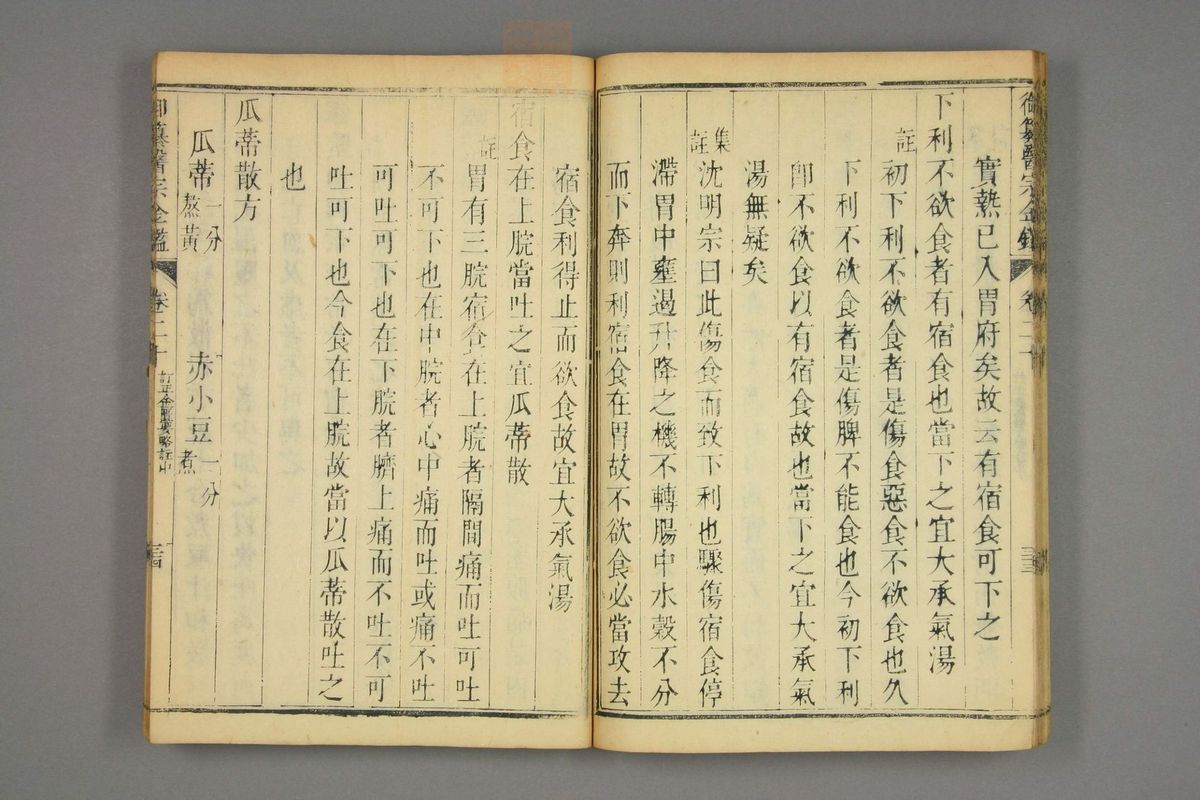 御纂醫宗金鑑 卷二十 三三
實熱已入胃府矣故云有宿食可下之
下利不欲食者有宿食也當下之宜大承氣湯
註 初下利不欲食者是傷食惡食不欲食也久
下利不欲食者是傷脾不能食也今初下利
卽不欲食以有宿食故也當下之宜大承氣
湯無疑矣
集註 沈明宗曰此傷食而致下利也驟傷宿食停
滯胃中壅遏升降之機不轉腸中水穀不分
而下奔則利宿食在胃故不欲食必當攻去
宿食利得止而欲食故宜大承氣湯
宿食在上脘當吐之宜瓜蒂散
註 胃有三脘宿食在上脘者隔間痛而吐可吐
不可下也在中脘者心中痛而吐或痛不吐
可吐可下也在下脘者臍上痛而不吐不可
吐可下也今食在上脘故當以瓜蒂散吐之
也
瓜蒂散方
瓜蒂一分熬黃 赤小豆一分煮
御纂醫宗金鑑 卷二十 訂正金匱要略註中 三四